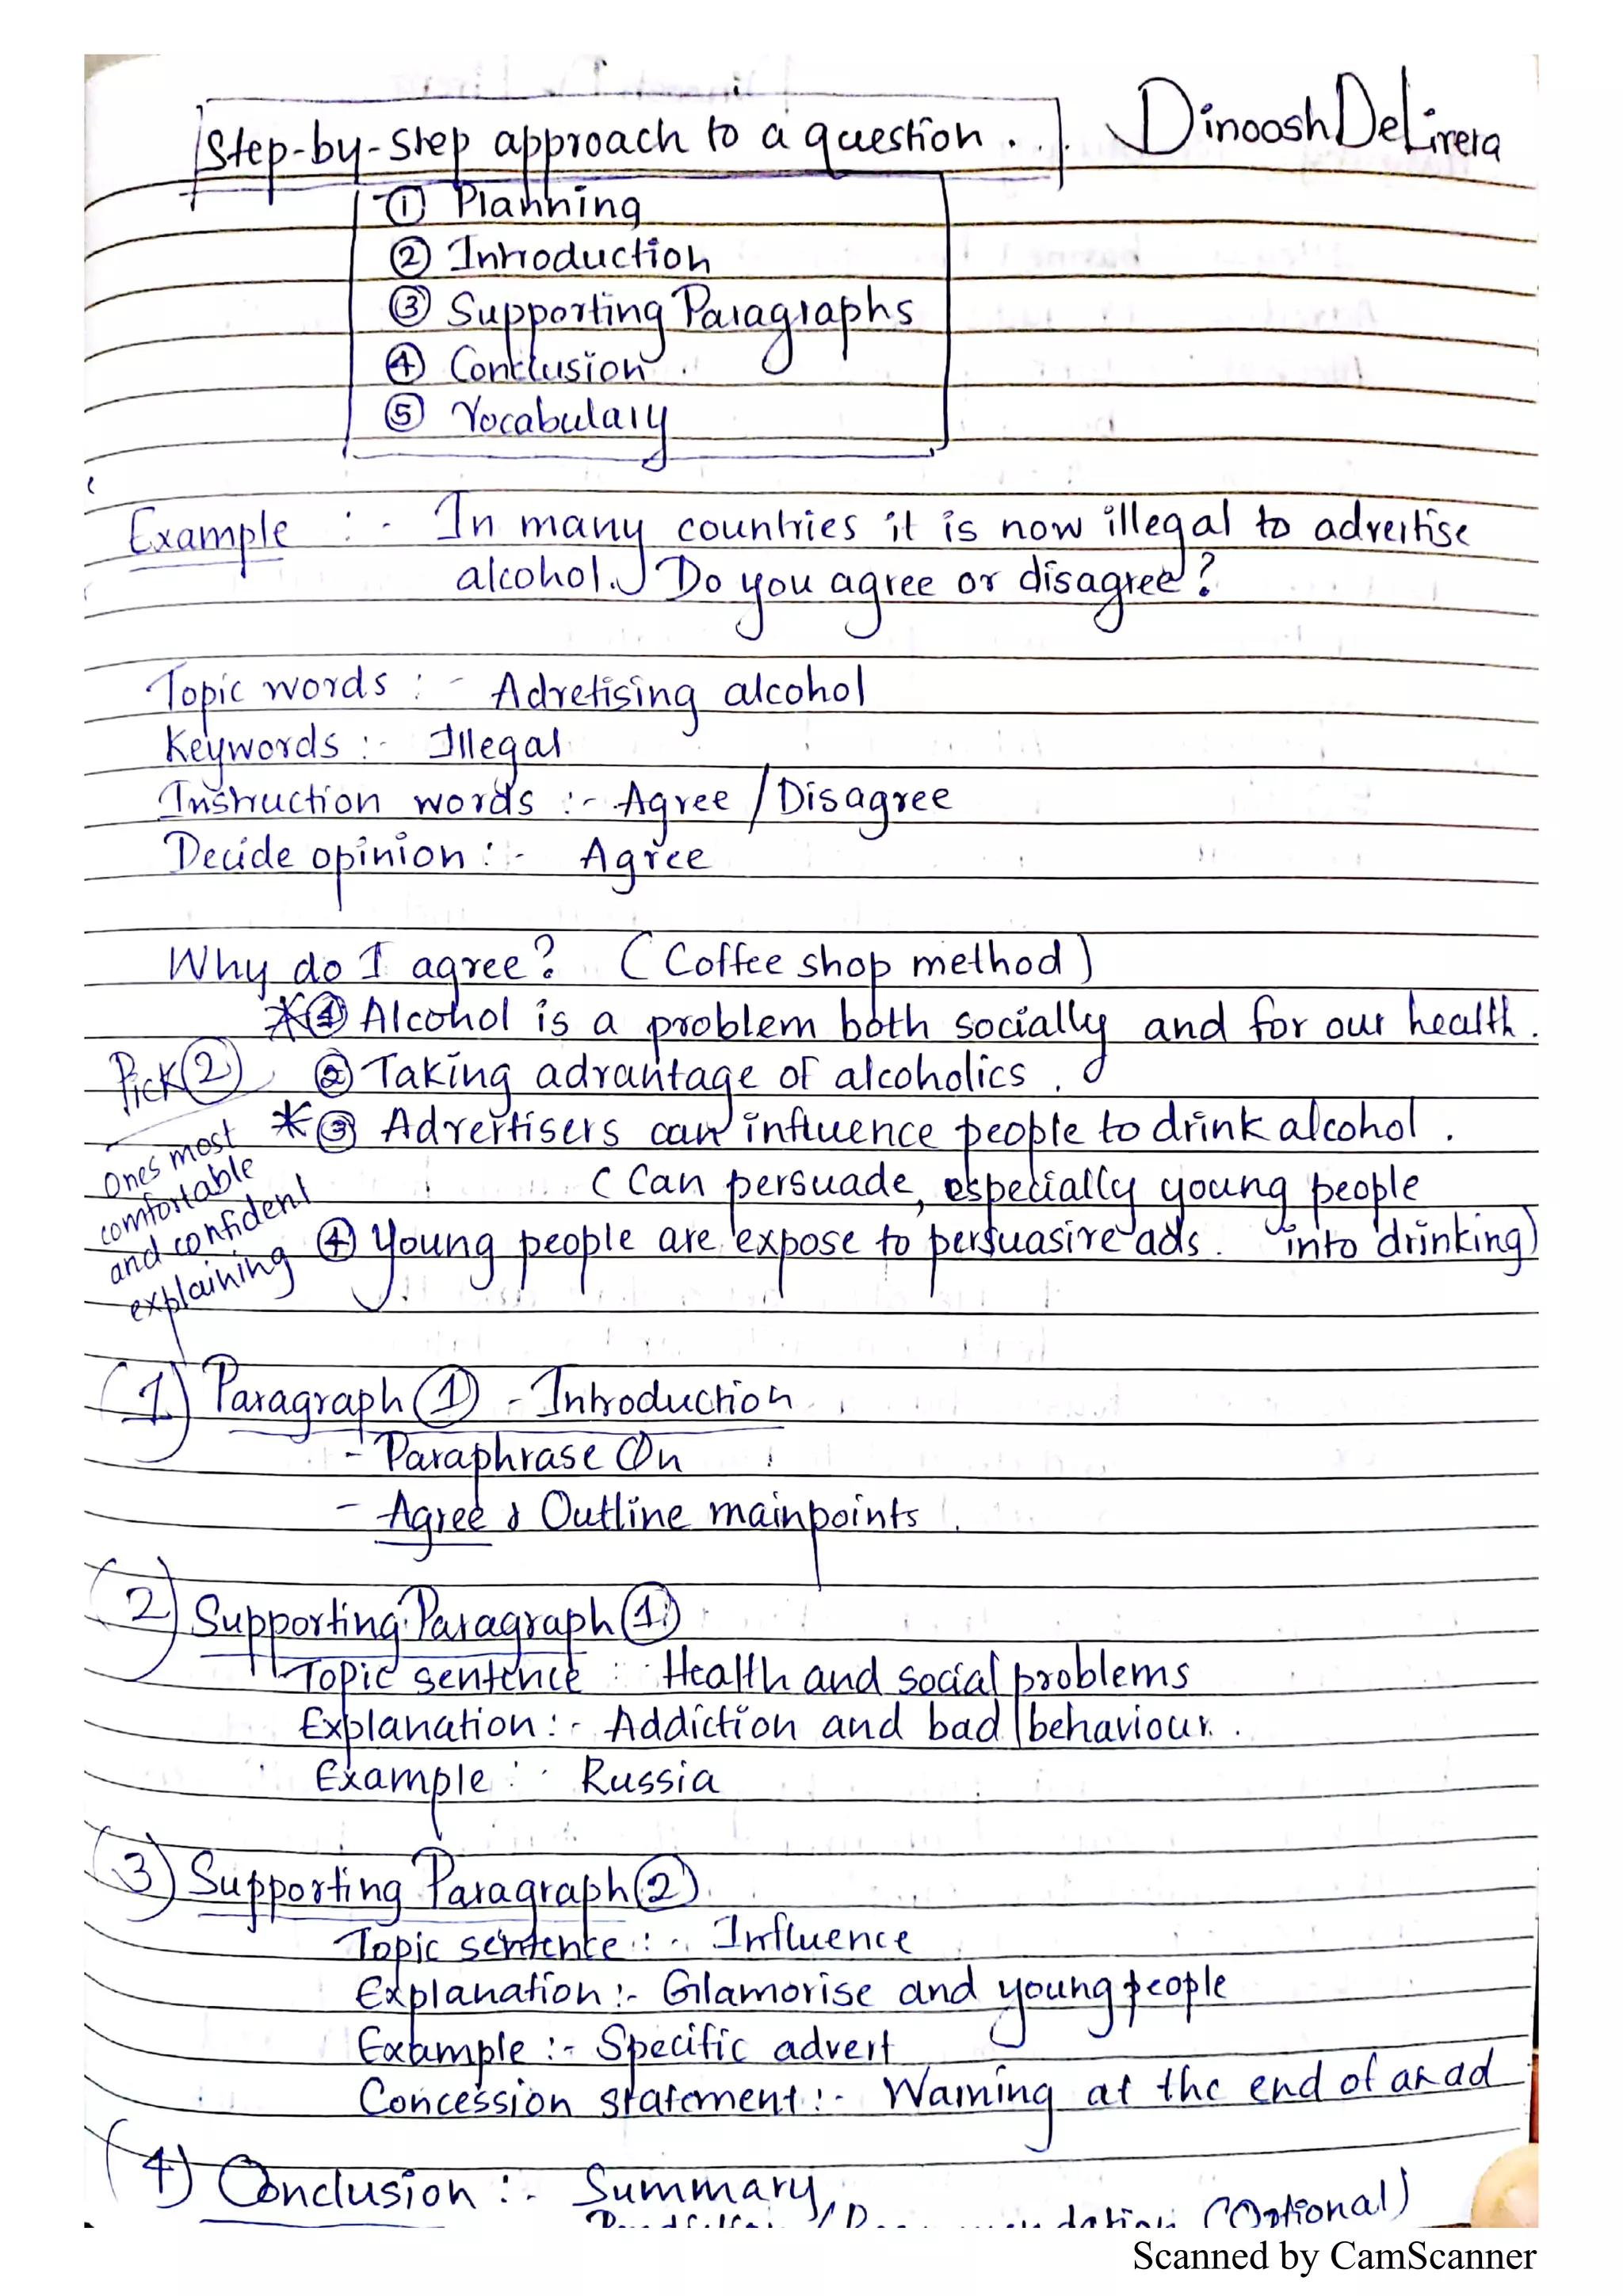 Step-by-step approach to a question...
Dinoosh DeLivera
① Planning
② Introduction
③ Supporting Paragraphs
④ Conclusion.
⑤ Vocabulary
Example :- In many countries it is now illegal to advertise
alcohol. Do you agree or disagree?
Topic words :- Advetising alcohol
Keywords :- Illegal
Instruction words :- Agree / Disagree
Decide opinion :- Agree
Why do I agree? (Coffee shop method)
*① Alcohol is a problem both socially and for our health.
Pick ②
② Taking advantage of alcoholics.
*③ Advertisers can influence people to drink alcohol.
(Can persuade, especially young people
into drinking)
④ Young people are expose to persuasive ads.
Ones most
comfortable
and confident
explaining
1) Paragraph ① - Introduction
- Paraphrase Qn
- Agree & Outline mainpoints.
2) Supporting Paragraph ①
Topic sentence : Health and social problems
Explanation :- Addiction and bad behaviour.
Example :- Russia
3) Supporting Paragraph ②
Topic sentence :- Influence
Explanation :- Glamorise and young people
Example :- Specific advert
Concession statement :- Warning at the end of an ad
4) Conclusion :- Summary,
(Optional)
Scanned by CamScanner